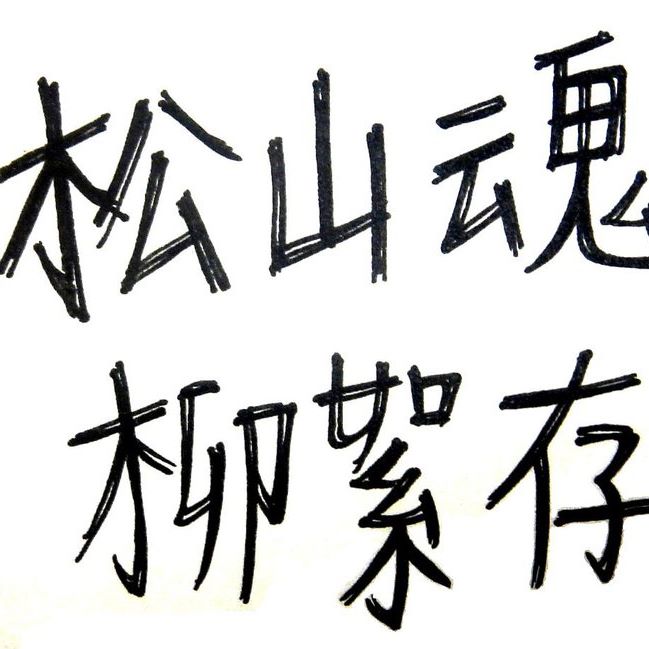 松山魂
柳絮存